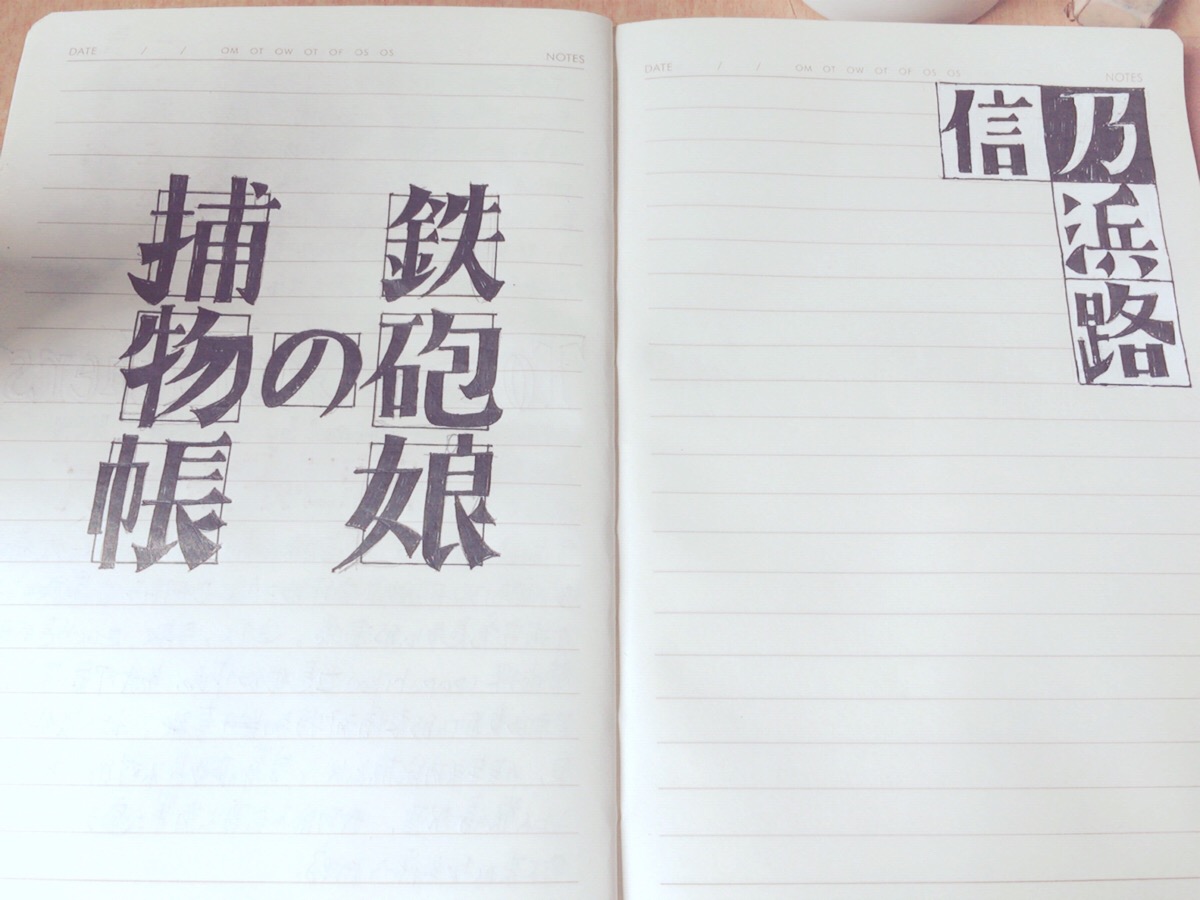 DATE / / OM OT OW OT OF OS OS NOTES
鉄砲娘
の
捕物帳
DATE / / OM OT OW OT OF OS OS NOTES
乃浜路
信